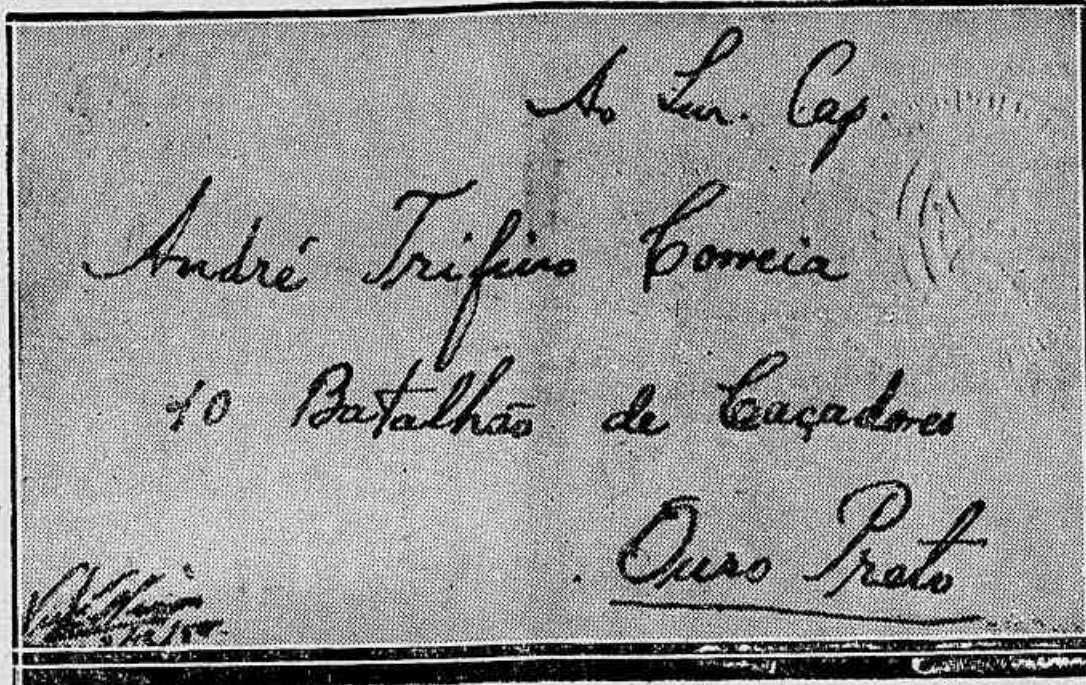 Ao Snr. Cap.
André Trifino Correia
10 Batalhão de Caçadores
Ouro Preto